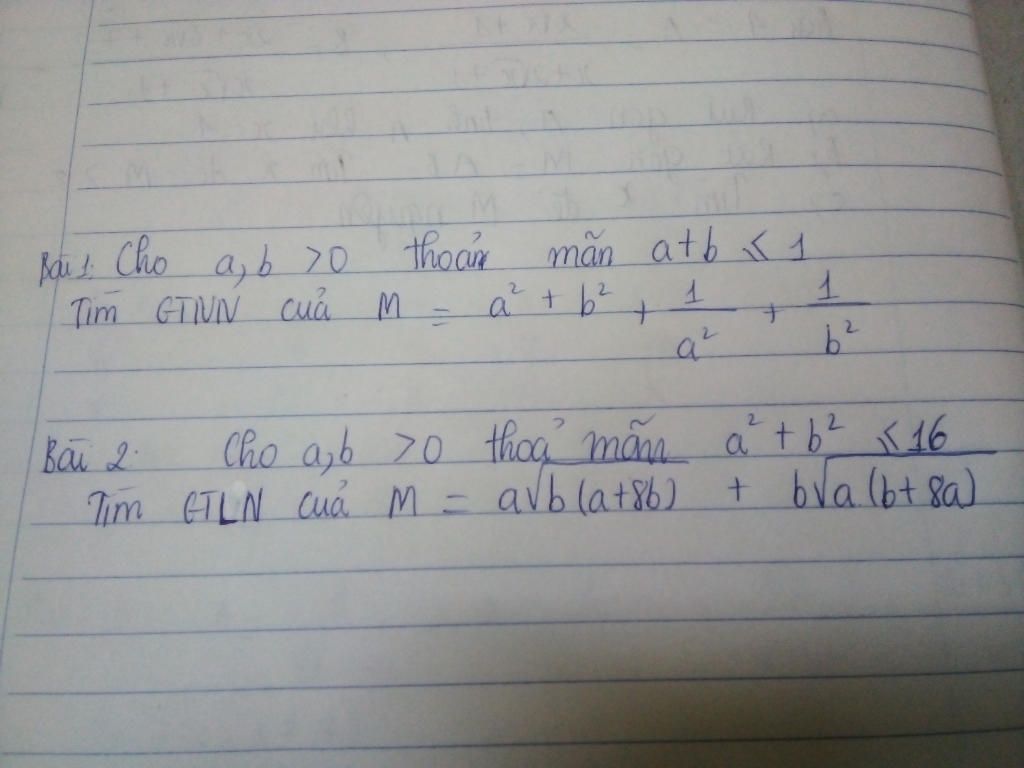 Bài 1: Cho a, b > 0 thoả mãn a + b ≤ 1
Tìm GTNN của M = a² + b² + 1/a² + 1/b²
Bài 2: Cho a, b > 0 thoả mãn a² + b² ≤ 16
Tìm GTLN của M = a√b(a+8b) + b√a.(b+8a)